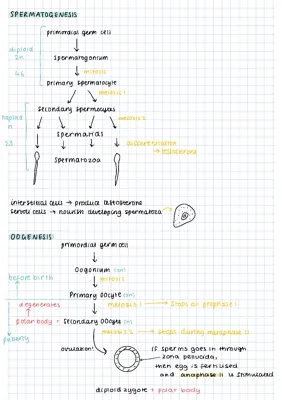 SPERMATOGENESIS
primordial germ cell
diploid
2n
spermatogonium
46
mitosis
Primary spermatocyte
meiosis I
haploid
n
Secondary spermocytes
meiosis II
spermatids
23
differentiation
→ testosterone
spermatozoa
interstitial cells → produce testosterone
sertoli cells → nourish developing spermatozoa
OOGENESIS
primordial germ cell
Oogonium (2n)
mitosis
before birth
Primary oocyte (2n)
degenerates
meiosis I → Stops at prophase I
polar body + Secondary oocyte (n)
puberty
meiosis II → Stops during metaphase II
ovulation!
if sperm goes in through
zona pellucida,
then egg is fertilised
and anaphase II is stimulated
diploid zygote + polar body